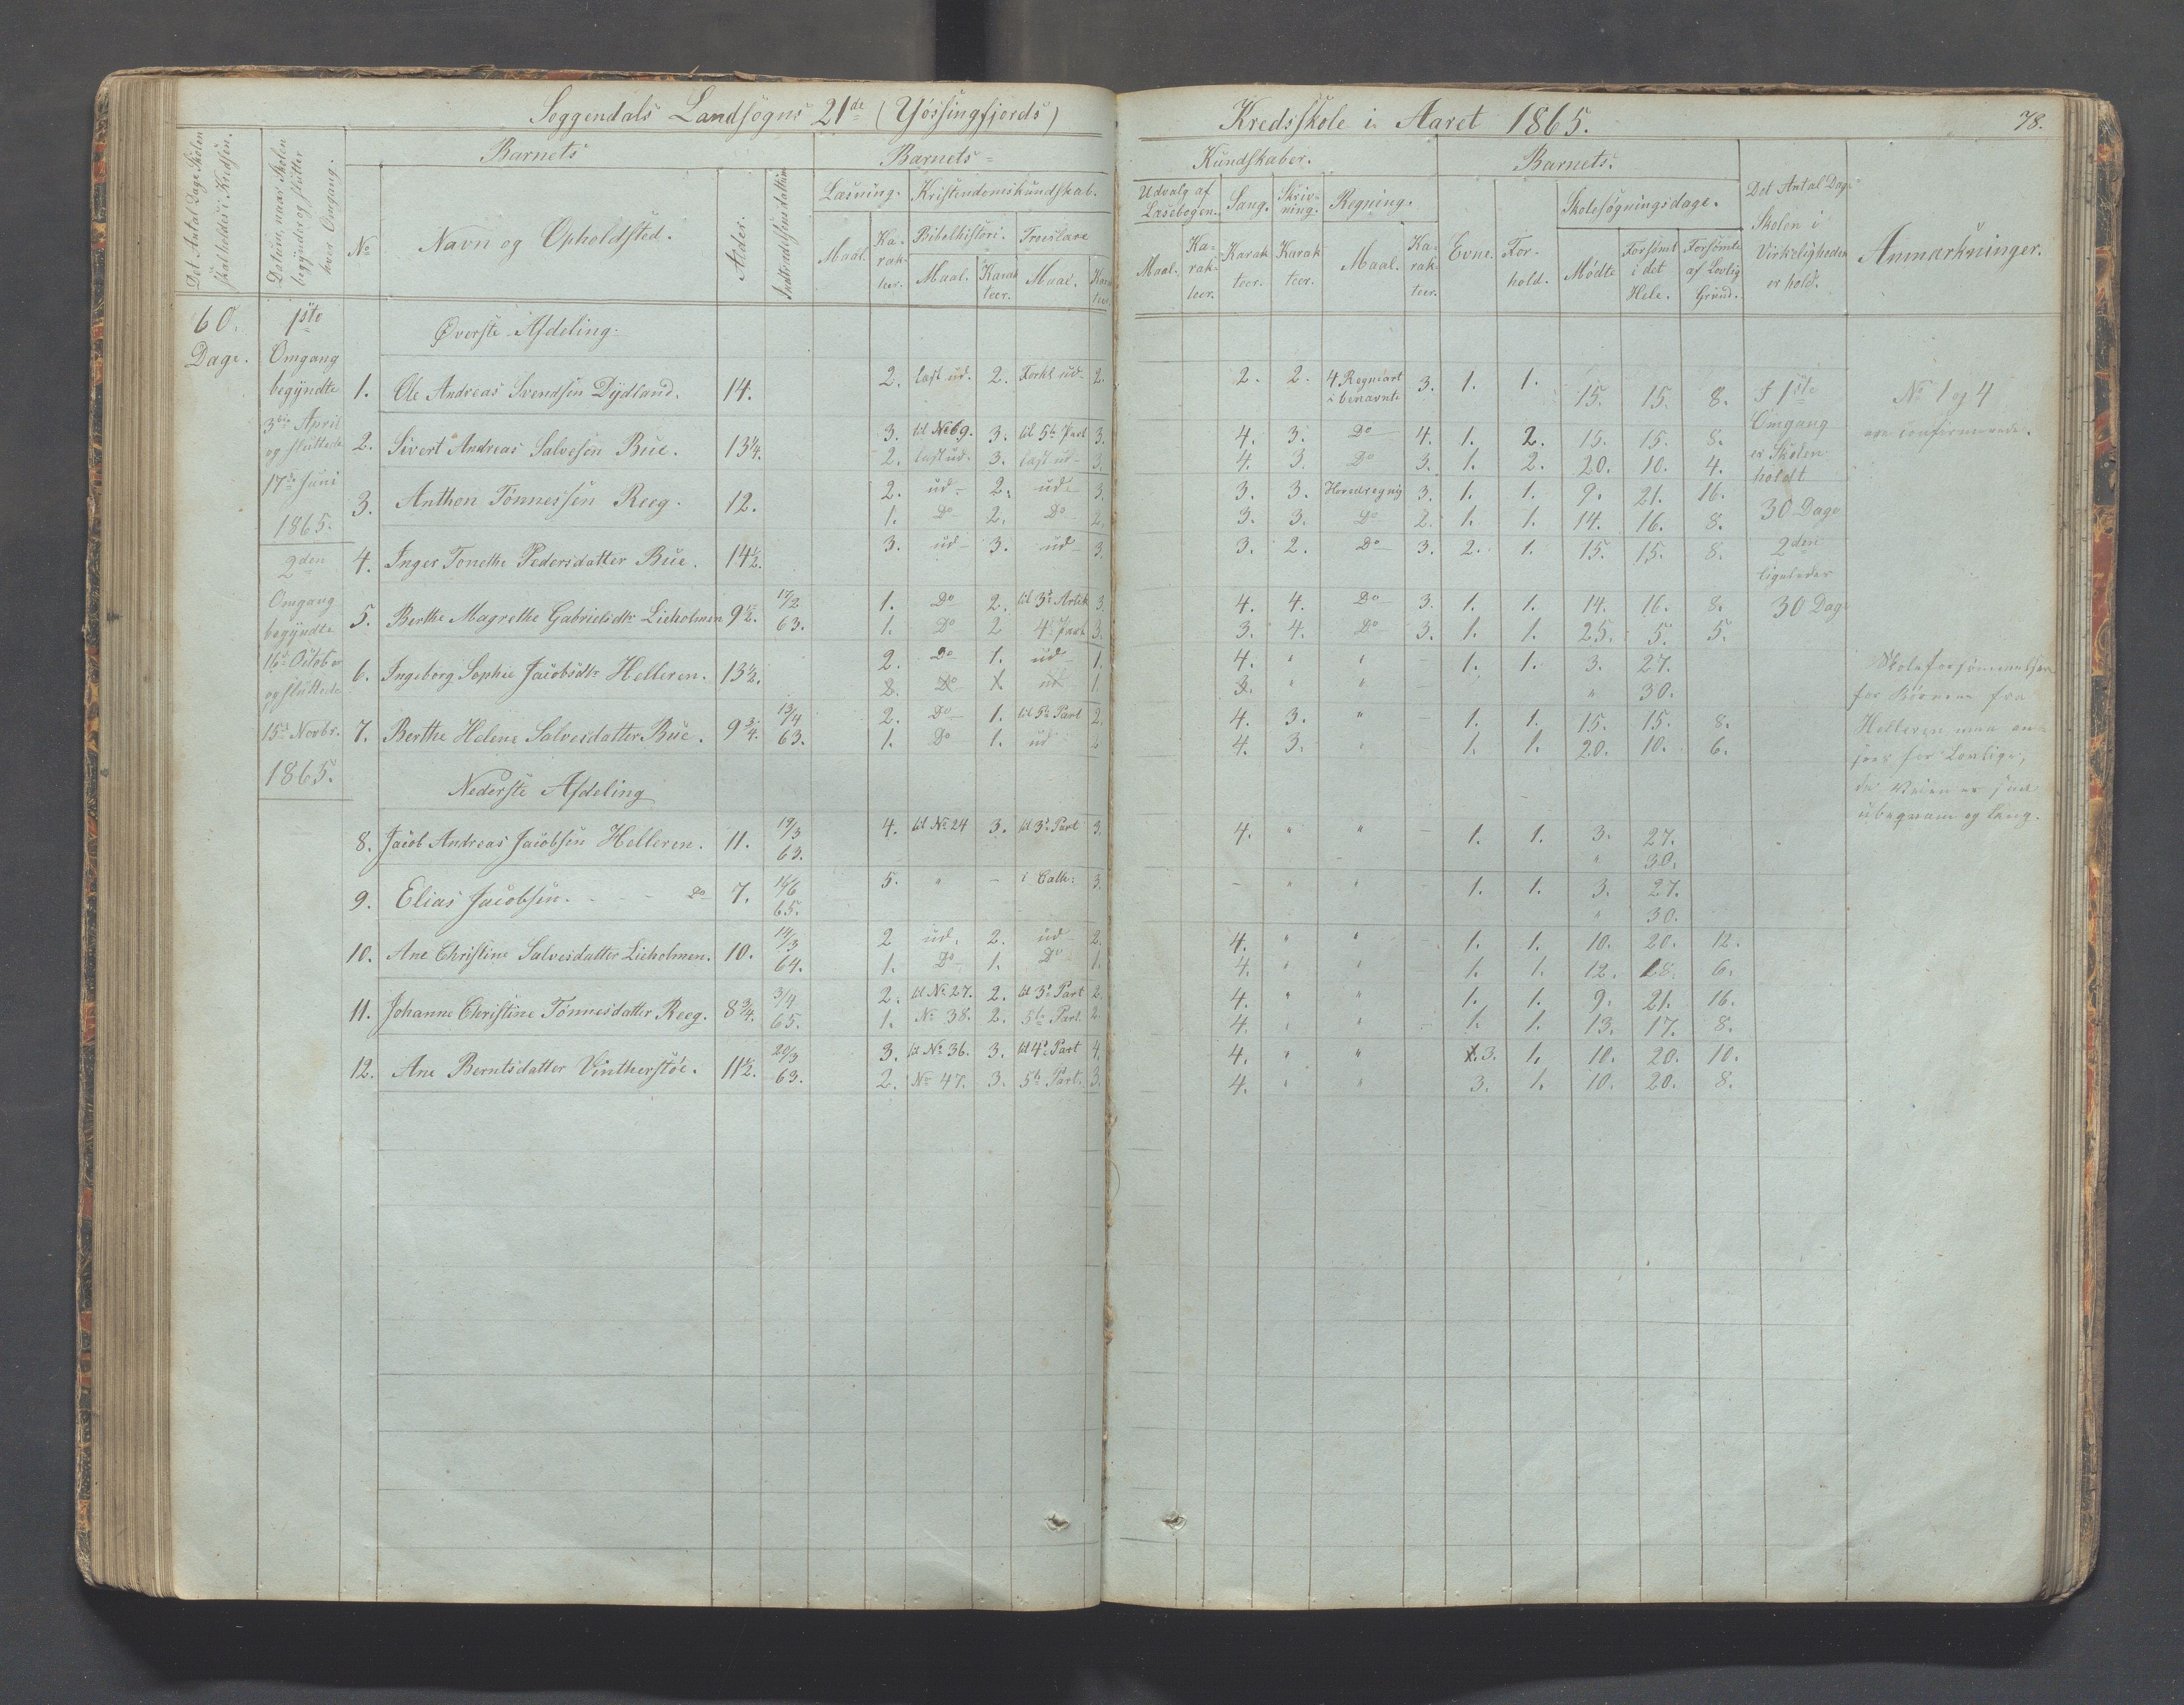 Soggendals Landsogns 21de (Yössingfjords)
Kredsskole i Aaret 1865.
78.
Det Antal Dage Skolen
skal holdes i Kredsen.
Datum, naar Skolen
begynder og slutter
hver Omgang.
Barnets
Barnets
No
Navn og Opholdsted.
Alder.
Indtrædelsesdatum
Læsning.
Kristendomskundskab.
Maal.
Karakteer.
Bibelhistori.
Troeslære
Maal.
Karakteer.
Maal.
Karakteer.
Kundskaber.
Barnets.
Udvalg af
Læsebogen.
Sang.
Skrivning.
Regning.
Maal.
Karakteer.
Karakteer.
Karakteer.
Maal.
Karakteer.
Evne.
Forhold.
Skolesøgningsdage.
Mødte
Forsömt
i det
Hele.
Forsömte
af Lovlig
Grund.
Det Antal Dage
Skolen i
Virkeligheden
er holdt.
Anmærkninger.
60.
Dage.
1ste
Omgang
begyndte
3die April
og sluttede
17de Juni
1865.
2den
Omgang
begyndte
16de October
og sluttede
15de Novbr.
1865.
Øverste Afdeling.
1. Ole Andreas Svendsen Dydland. 14. 2. læst ud. 2. Forkl ud 2. 2. 2. 4 Regneart i benævnte 3. 1. 1. 15. 15. 8.
2. Sivert Andreas Salvesen Bue. 13¼. 3. til No 69. 3. til 5te Part 3. 4. 3. Do 4. 1. 2. 15. 15. 8.
2. læst ud. 3. læst ud 3. 4. 3. Do 3. 1. 2. 20. 10. 4.
3. Anthon Tönnessen Reeg. 12. 2. ud 2. ud 3. 3. 3. Hovedregnig 3. 1. 1. 9. 21. 16.
1. Do 2. Do 2. 3. 3. Do 2. 1. 1. 14. 16. 8.
4. Inger Tonethe Pedersdatter Bue. 14½. 3. ud 3. ud 3. 3. 2. Do 3. 2. 1. 15. 15. 8.
5. Berthe Magrethe Gabrielsdtr Lieholmen 9½. 17/2 63. 1. Do 2. til 3d Artik 3. 4. 4. Do 3. 1. 1. 14. 16. 8.
1. Do 2 4de Part 3. 3. 4. Do 3. 1. 1. 25. 5. 5.
6. Ingeborg Sophie Jacobsdtr Helleren. 13½. 2. Do 1. ud 1. 4. " " 1. 1. 3. 27.
2. Do 1. ud 1. 3. " " " 30.
7. Berthe Helene Salvesdatter Bue. 9¾. 13/4 63. 2. Do 1. til 5te Part 2. 4. 3. " 1. 1. 15. 15. 8.
1. Do 1. ud 2 4. 3. " 1. 1. 20. 10. 6.
Nederste Afdeling
8. Jacob Andreas Jacobsen Helleren. 11. 19/3 63. 4. til No 24 3. til 3d Part 3. 4. " " 1. 1. 3. 27.
" 30.
9. Elias Jacobsen. Do 7. 16/6 65. 5. " i Cath: 3. " " 1. 1. 3. 27.
" 30.
10. Ane Christine Salvesdatter Lieholmen. 10. 14/3 64. 2 ud. 2. ud 2. 4. " " 1. 1. 10. 20. 12.
1. Do 1. Do 1. 4. " " 1. 1. 12. 18. 6.
11. Johanne Christine Tönnesdatter Reeg. 8¾. 3/4 65. 2. til No 27. 2. til 3d Part 2. 4. " " 1. 1. 9. 21. 16.
1. No 38. 2. 5te Part. 2. 4. " " 1. 1. 13. 17. 8.
12. Ane Berntsdatter Vintherstöe. 11½. 20/3 63. 3. til No 36. 3. til 4de Part 4. 4. " " 3. 1. 10. 20. 10.
2. No 47. 3. 5te Part. 3. 4. " " 3. 1. 10. 20. 8.
I 1ste
Omgang
er Skolen
holdt
30 Dage
2den
ligeledes
30 Dage
No 1 og 4
ere confirmerede.
Skoleforsömmelsen
for Börnene fra
Helleren maa ansees
for Lovlige,
da Veien er
ubeqvem og lang.